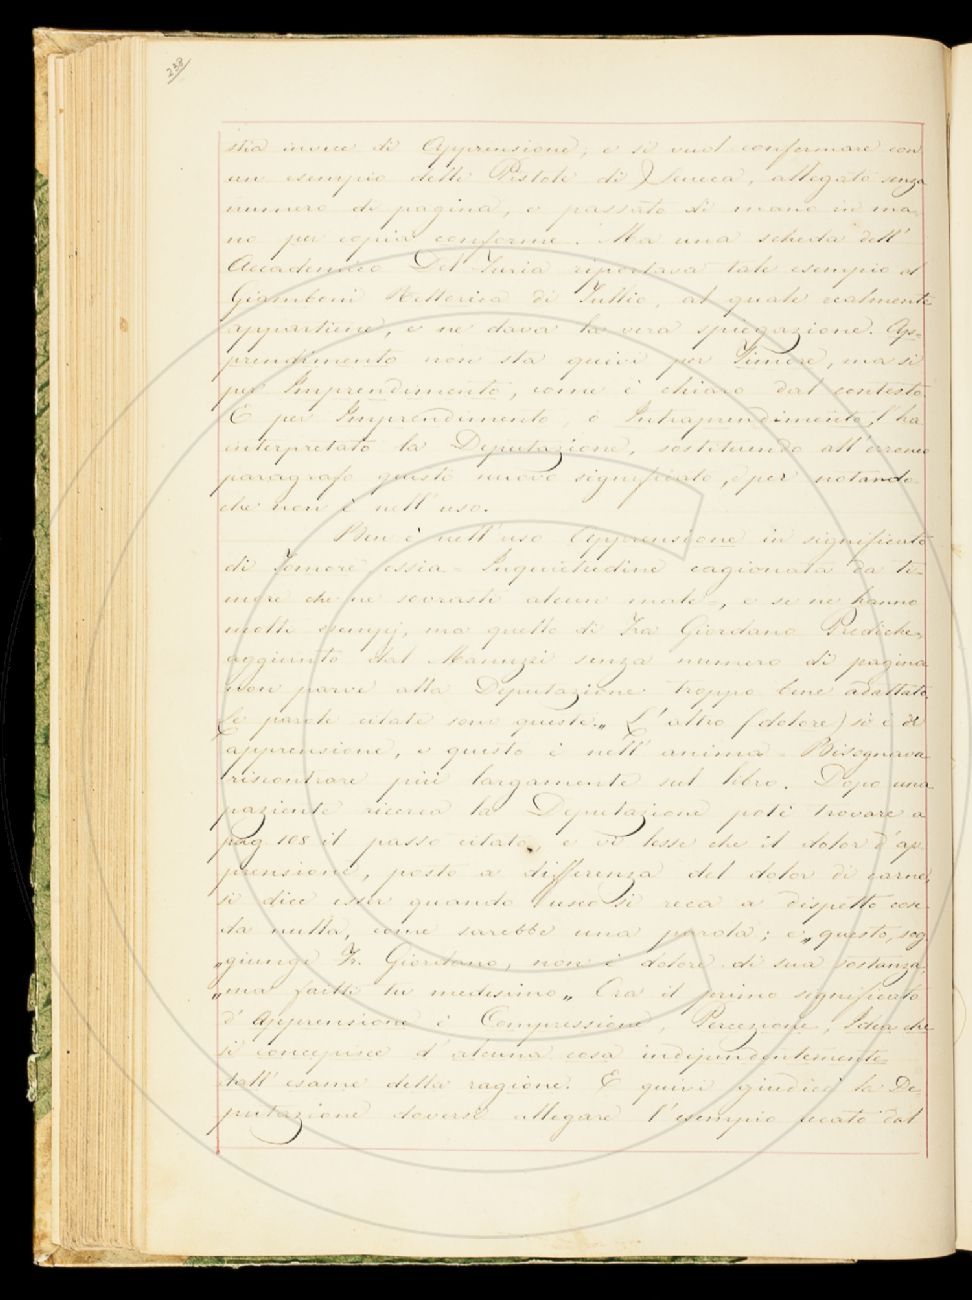 238
stia invece di Apprensione; e si vuol confermare con
un esempio delle Pistole di Seneca, allegato senza
numero di pagina, e passato di mano in ma-
no per copia conforme. Ma una scheda dell'
Accademico Del Furia riportava tale esempio al
Giamboni Rettorica di Tullio, al quale realmente
appartiene, e ne dava la vera spiegazione. Ap-
prendimento non sta quivi per Timore, ma sì
per Imprendimento, come è chiaro dal contesto.
E per Imprendimento, o Intraprendimento, l'ha
interpretato la Deputazione, sostituendo all'erroneo
paragrafo questo nuovo significato, e per notando
che non è nell'uso.
Ben è nell'uso Apprensione in significato
di Timore ossia = Inquietudine cagionata da ti-
more che ne sovrasti alcun male =, e se ne hanno
molti esempj, ma quello di Fra Giordano Prediche,
aggiunto dal Manuzzi senza numero di pagina
non parve alla Deputazione troppo bene adattato.
Le parole citate sono queste. „ L'altro (dolore) si è d'
apprensione, e questo è nell'anima = Bisognava
riscontrare più largamente sul libro. Dopo una
paziente ricerca la Deputazione potè trovare a
pag. 108 il passo citato, e vi lesse che il dolor d'ap-
prensione, posto a differenza del dolor di carne,
si dice esser quando uno si reca a dispetto cosa
da nulla, come sarebbe una parola; e „questo, sog-
„giunge Fr. Giordano, non è dolore di sua sostanza,
„ma failti tu medesimo„ Ora il primo significato
d'Apprensione è Compressione, Percezione, Idea che
si concepisce d'alcuna cosa indipendentemente
dall'esame della ragione. E quivi giudicò la De-
putazione doversi allegare l'esempio recato dal